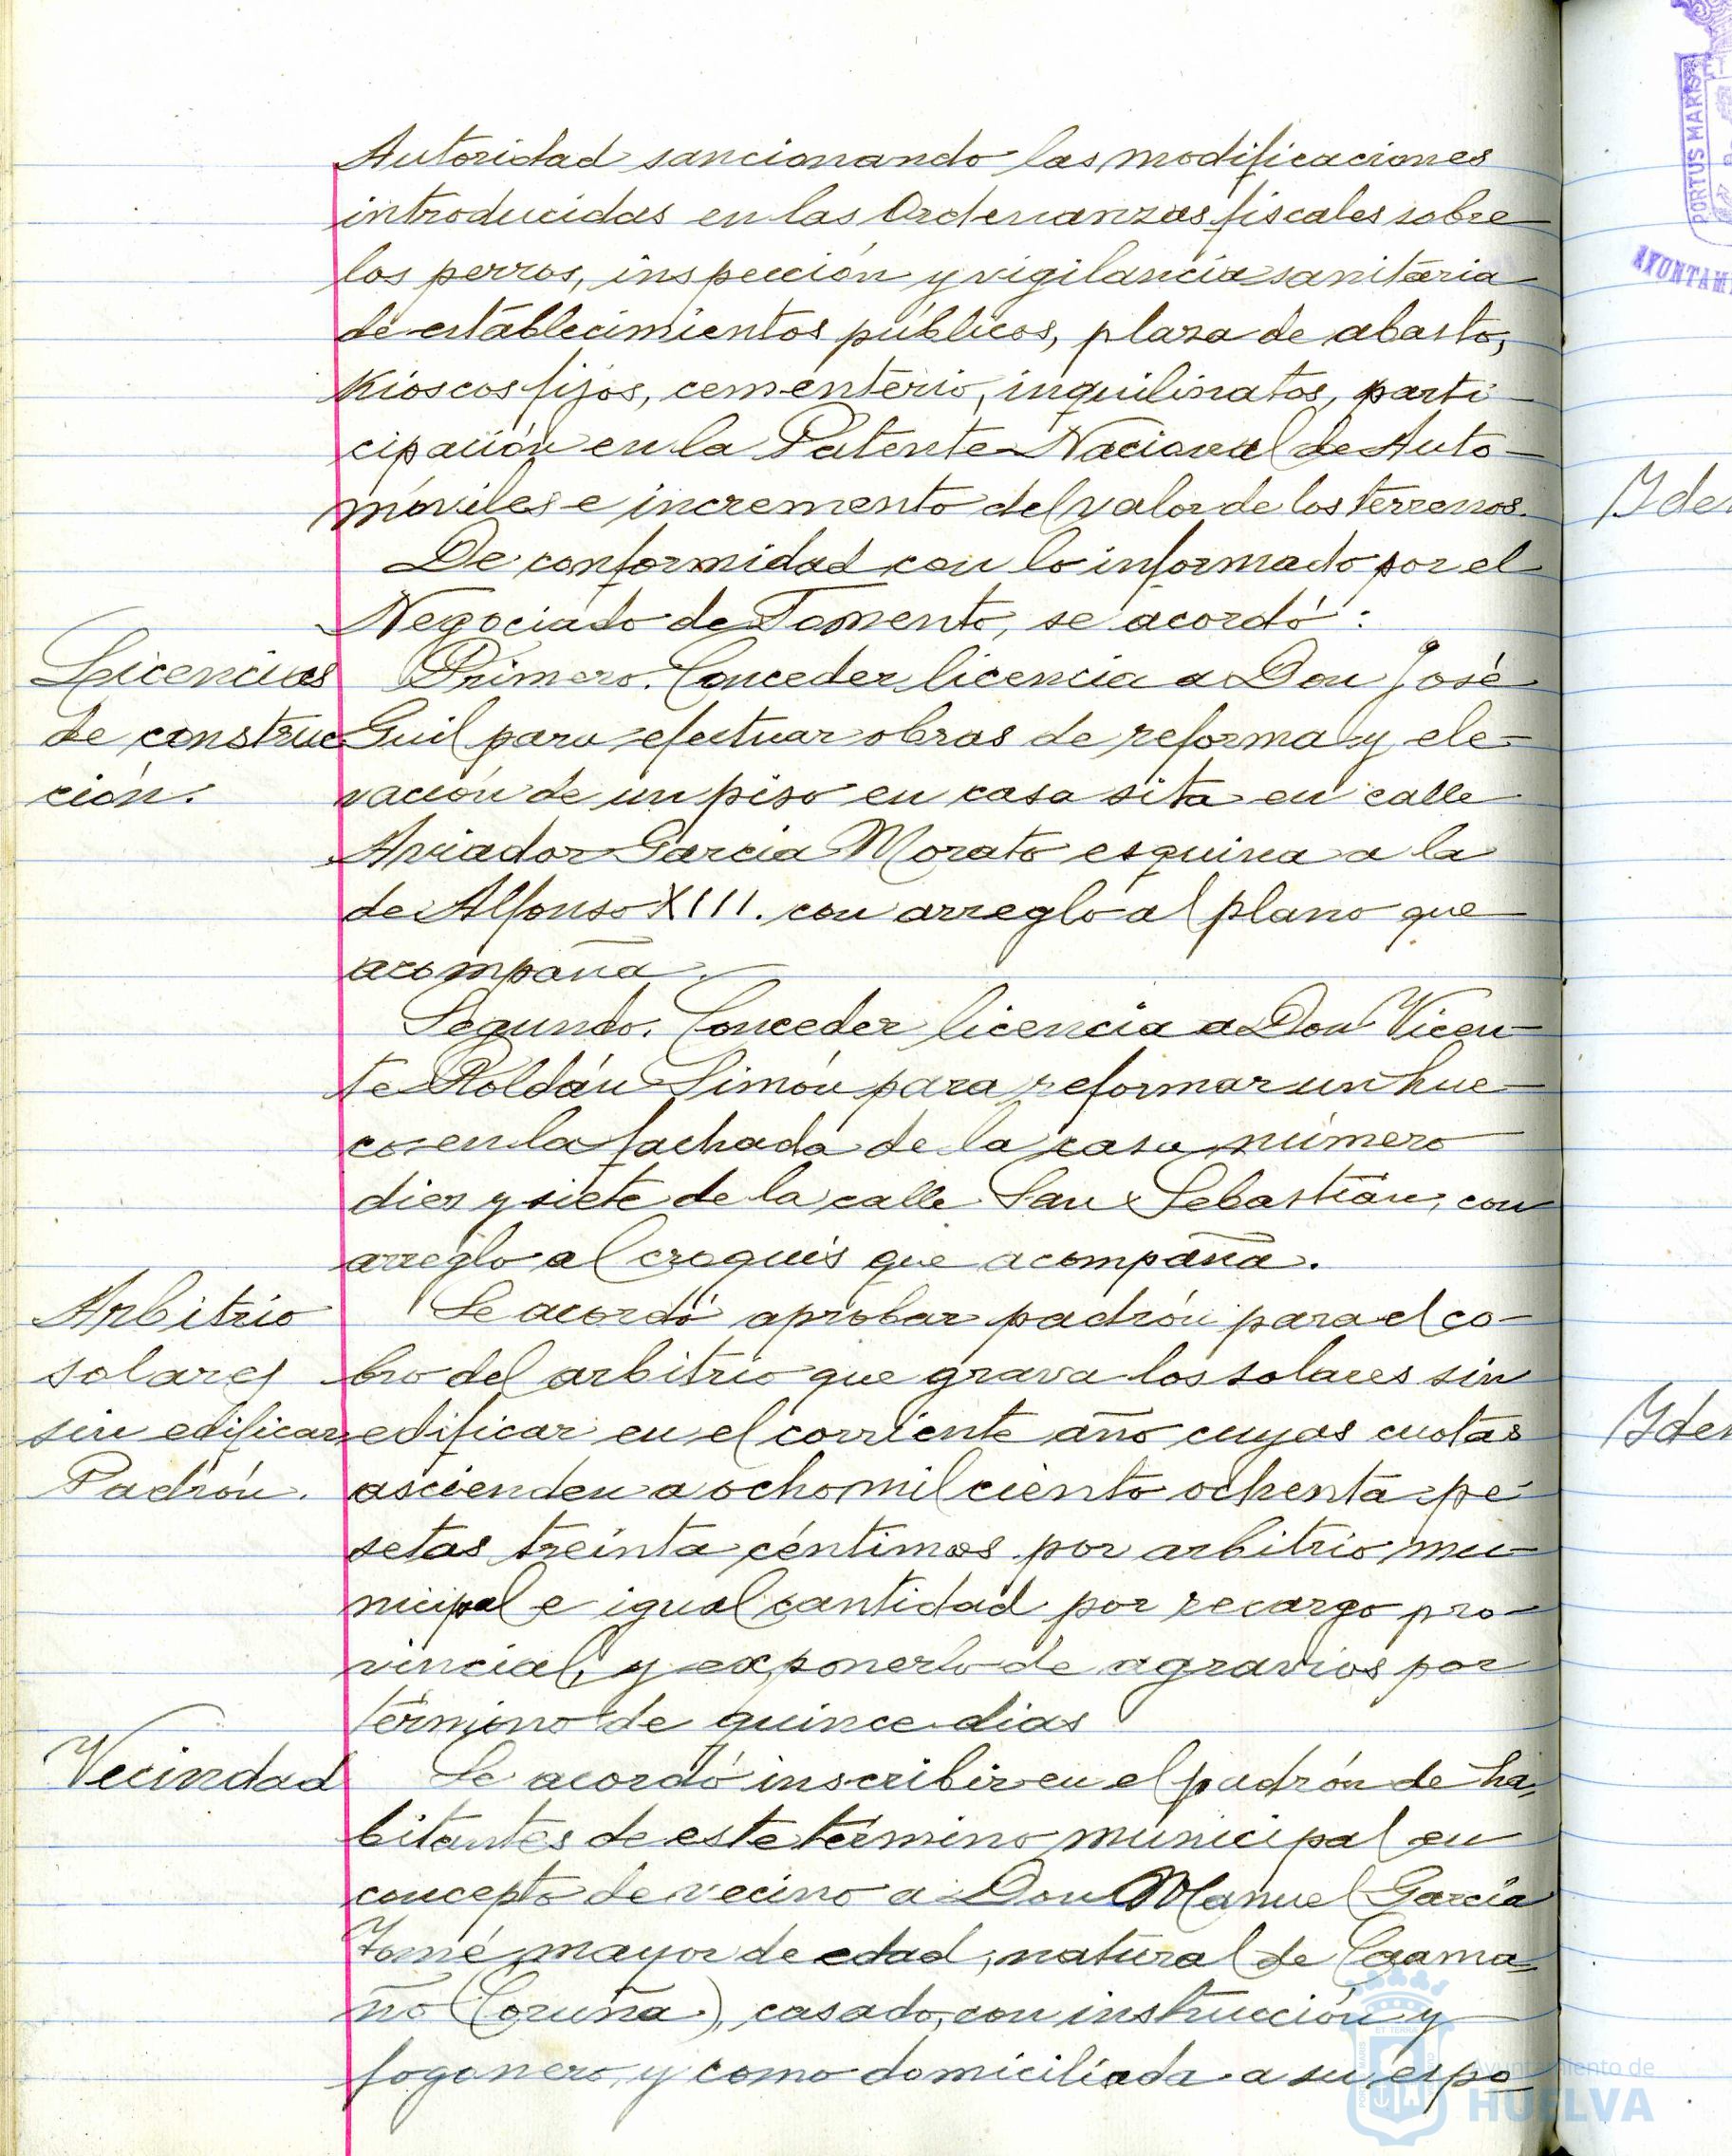 Autoridad sancionando las modificaciones
introducidas en las Ordenanzas fiscales sobre
los perros, inspección y vigilancia sanitaria
de establecimientos públicos, plaza de abasto,
Kioscos fijos, cementerio, inquilinatos, parti-
cipación en la Patente Nacional de Auto-
móviles e incremento del valor de los terrenos.
De conformidad con lo informado por el
Negociado de Fomento, se acordó:
Licencias
de construc
ción.
Primero. Conceder licencia a Don José
Guil para efectuar obras de reforma y ele-
vación de un piso en casa sita en calle
Aviador Garcia Morato esquina a la
de Alfonso XIII. con arreglo al plano que
acompaña.
Segundo. Conceder licencia a Don Vicen-
te Roldán Simón para reformar un hue-
co en la fachada de la casa número
diez y siete de la calle San Sebastián, con
arreglo al croquis que acompaña.
Arbitrio
solares
sin edificar
Padrón.
Se acordó aprobar padrón para el co-
bro del arbitrio que grava los solares sin
edificar en el corriente año cuyas cuotas
ascienden a ocho mil ciento ochenta pe-
setas treinta céntimos por arbitrio mu-
nicipal e igual cantidad por recargo pro-
vincial, y exponerlo de agravios por
término de quince dias
Vecindad
Se acordó inscribir en el padrón de ha-
bitantes de este término municipal en
concepto de vecino a Don Manuel García
Tomé, mayor de edad, natural de Caama-
ño (Coruña), casado, con instrucción y
fogonero, y como domiciliada a su espo-
PORTUS MARIS ET
AYUNTAM
Yden
Yden
Ayuntamiento de
HUELVA